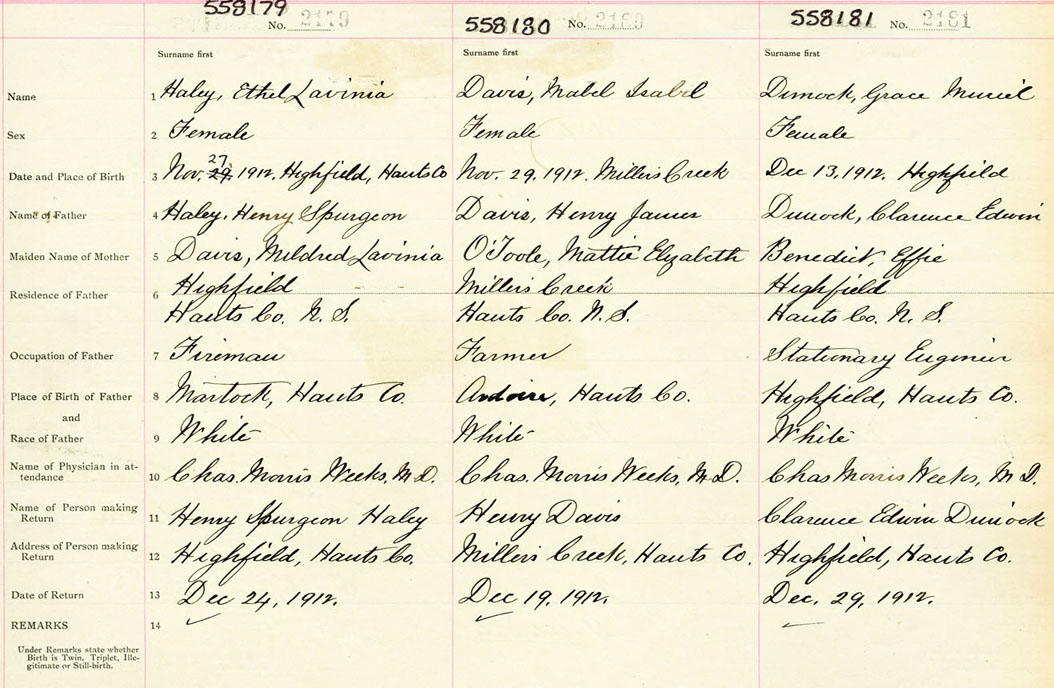 558179 No. 2179 558180 No. 2180 558181 No. 2181
Surname first Surname first Surname first
Name 1 Haley, Ethel Lavinia Davis, Mabel Isabel Dimock, Grace Muriel
Sex 2 Female Female Female
27
Date and Place of Birth 3 Nov. 29. 1912. Highfield, Hants Co Nov. 29. 1912. Millers Creek Dec 13, 1912. Highfield
Name of Father 4 Haley, Henry Spurgeon Davis, Henry James Dimock, Clarence Edwin
Maiden Name of Mother 5 Davis, Mildred Lavinia O'Toole, Mattie Elizabeth Benedict, Effie
Residence of Father 6 Highfield Millers Creek Highfield
Hants Co. N. S. Hants Co. N. S. Hants Co. N. S.
Occupation of Father 7 Fireman Farmer Stationary Engineer
Place of Birth of Father 8 Martock, Hants Co. Hants Co. Highfield, Hants Co.
and
Race of Father 9 White White White
Name of Physician in at-
tendance 10 Chas. Morris Weeks, M.D. Chas. Morris Weeks, M.D. Chas Morris Weeks, M D.
Name of Person making
Return 11 Henry Spurgeon Haley Henry Davis Clarence Edwin Dimock
Address of Person making
Return 12 Highfield, Hants Co. Millers Creek, Hants Co. Highfield, Hants Co.
Date of Return 13 Dec 24, 1912. Dec 19, 1912. Dec. 29, 1912.
REMARKS 14
Under Remarks state whether
Birth is Twin, Triplet, Ille-
gitimate or Still-birth.